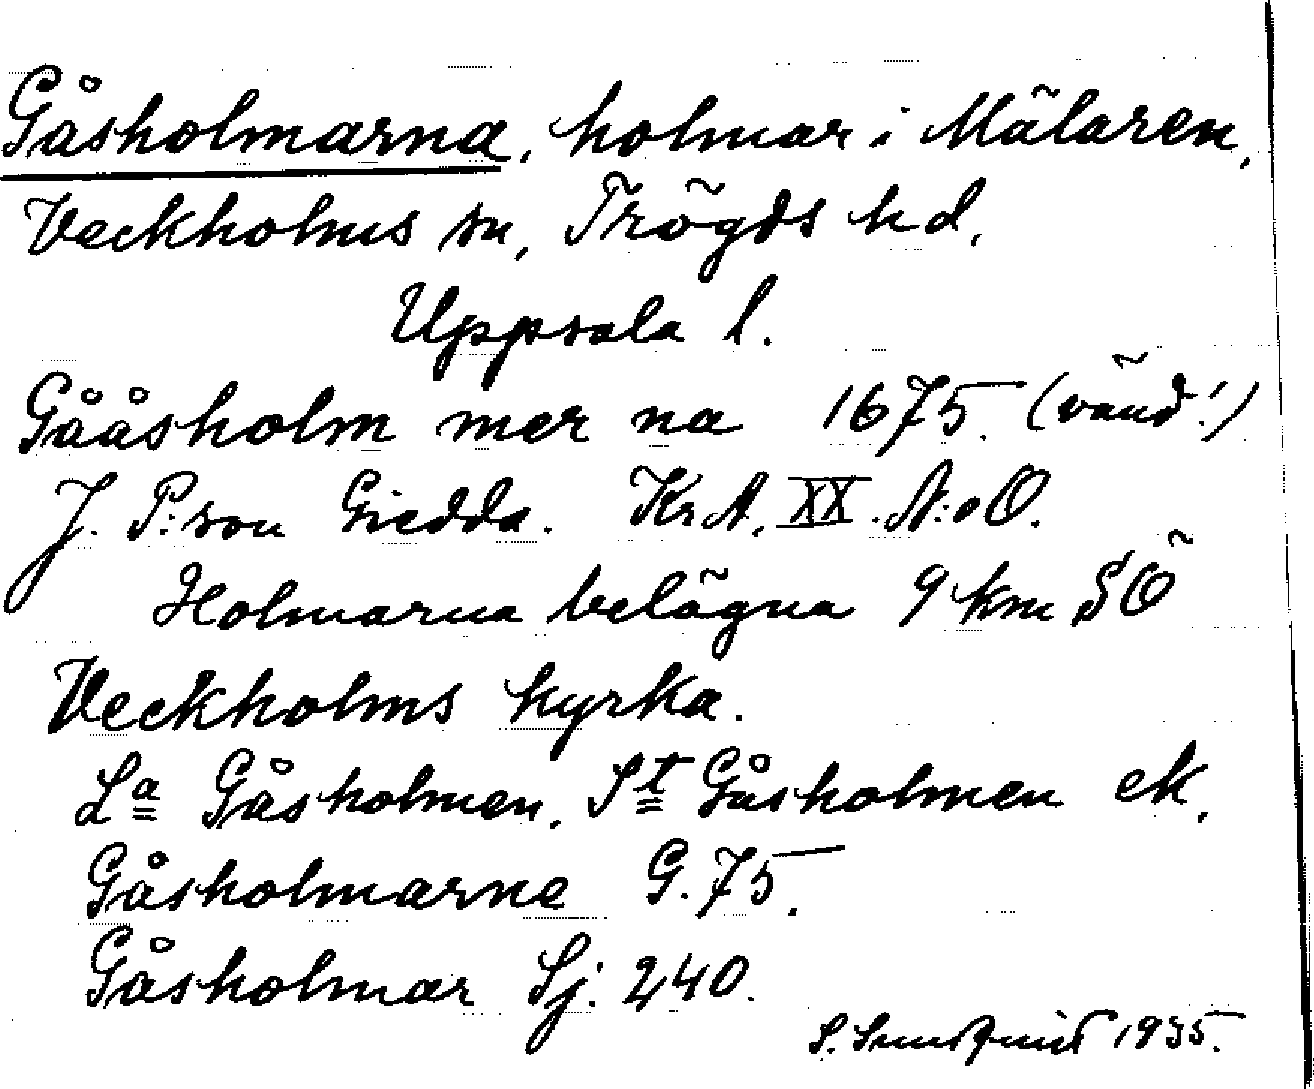 Gåsholmarna, holmar i Mälaren,
Veckholms sn, Trögds hd,
Uppsala l.
Gååsholm mer na 1675. (vänd!)
J. P:son Giedda. KrA. XX. N:o O.
Holmarna belägna 9 km SÖ
Veckholms kyrka.
La Gåsholmen, St Gåsholmen ek,
Gåsholmarne G. 75.
Gåsholmar Sj. 240.
S. Sundquist 1935.